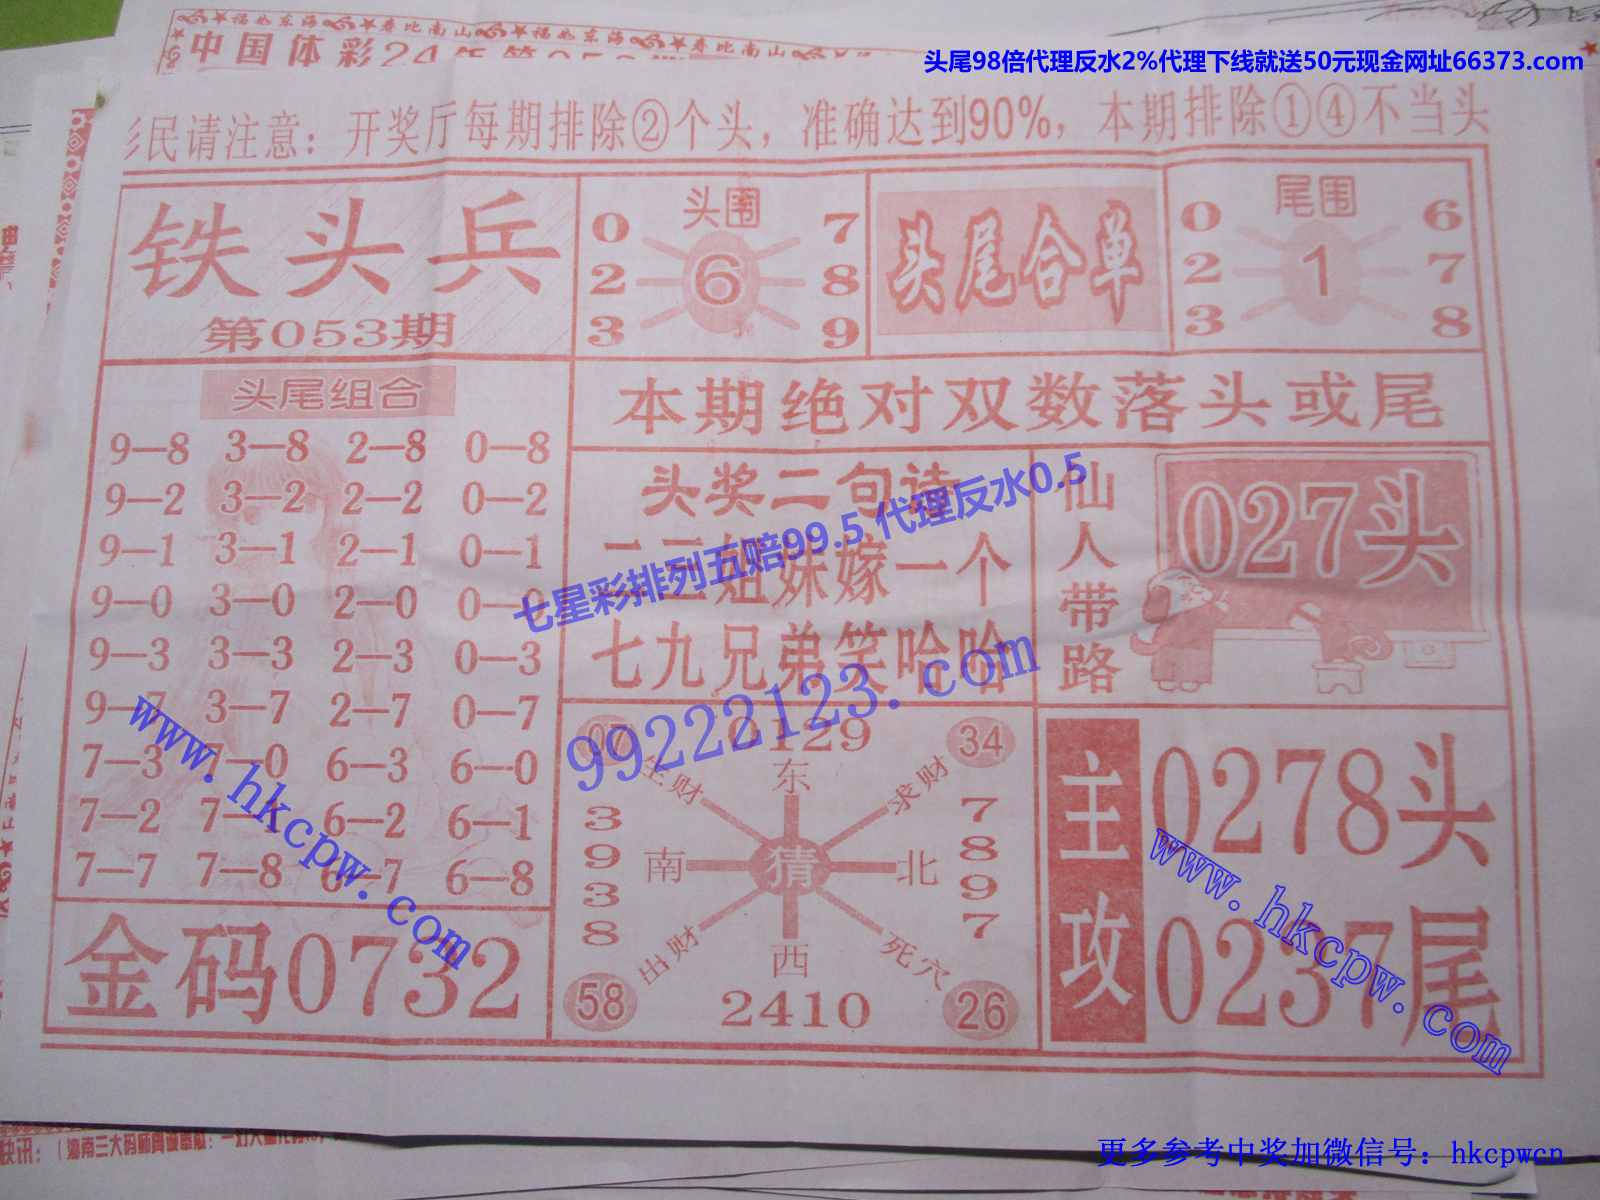 福如东海 寿比南山 福如东海 寿比南山
中国体彩24年第053期
头尾98倍代理反水2%代理下线就送50元现金网址66373.com
彩民请注意：开奖厅每期排除②个头，准确达到90%，本期排除①④不当头
铁头兵
第053期
头围
0 7
2 6 8
3 9
头尾合单
尾围
0 6
2 1 7
3 8
头尾组合
9—8 3—8 2—8 0—8
9—2 3—2 2—2 0—2
9—1 3—1 2—1 0—1
9—0 3—0 2—0 0—0
9—3 3—3 2—3 0—3
9—7 3—7 2—7 0—7
7—3 7—0 6—3 6—0
7—2 7—1 6—2 6—1
7—7 7—8 6—7 6—8
金码0732
本期绝对双数落头或尾
头奖二句诗
二三姐妹嫁一个
七九兄弟笑哈哈
仙人带路
027头
07 2129 34
生财 东 求财
3938 南 猜 北 7897
出财 西 死穴
58 2410 26
主攻
0278头
0237尾
七星彩排列五赔99.5 代理反水0.5
99222123.com
www.hkcpw.com
www.hkcpw.com
快讯：
更多参考中奖加微信号：hkcpwcn